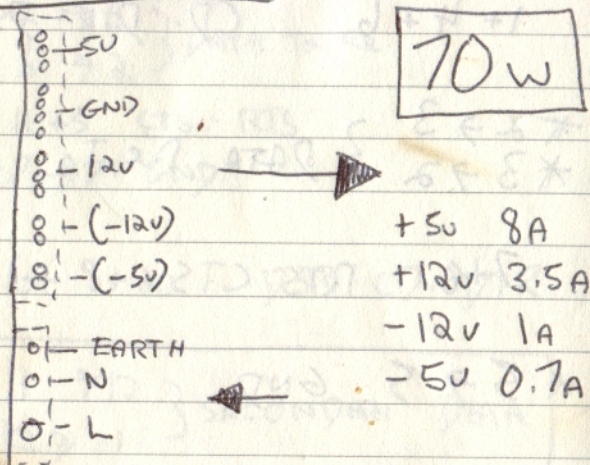 5V
GND
12V
(-12V)
(-5V)
EARTH
N
L
70W
+5V 8A
+12V 3.5A
-12V 1A
-5V 0.7A